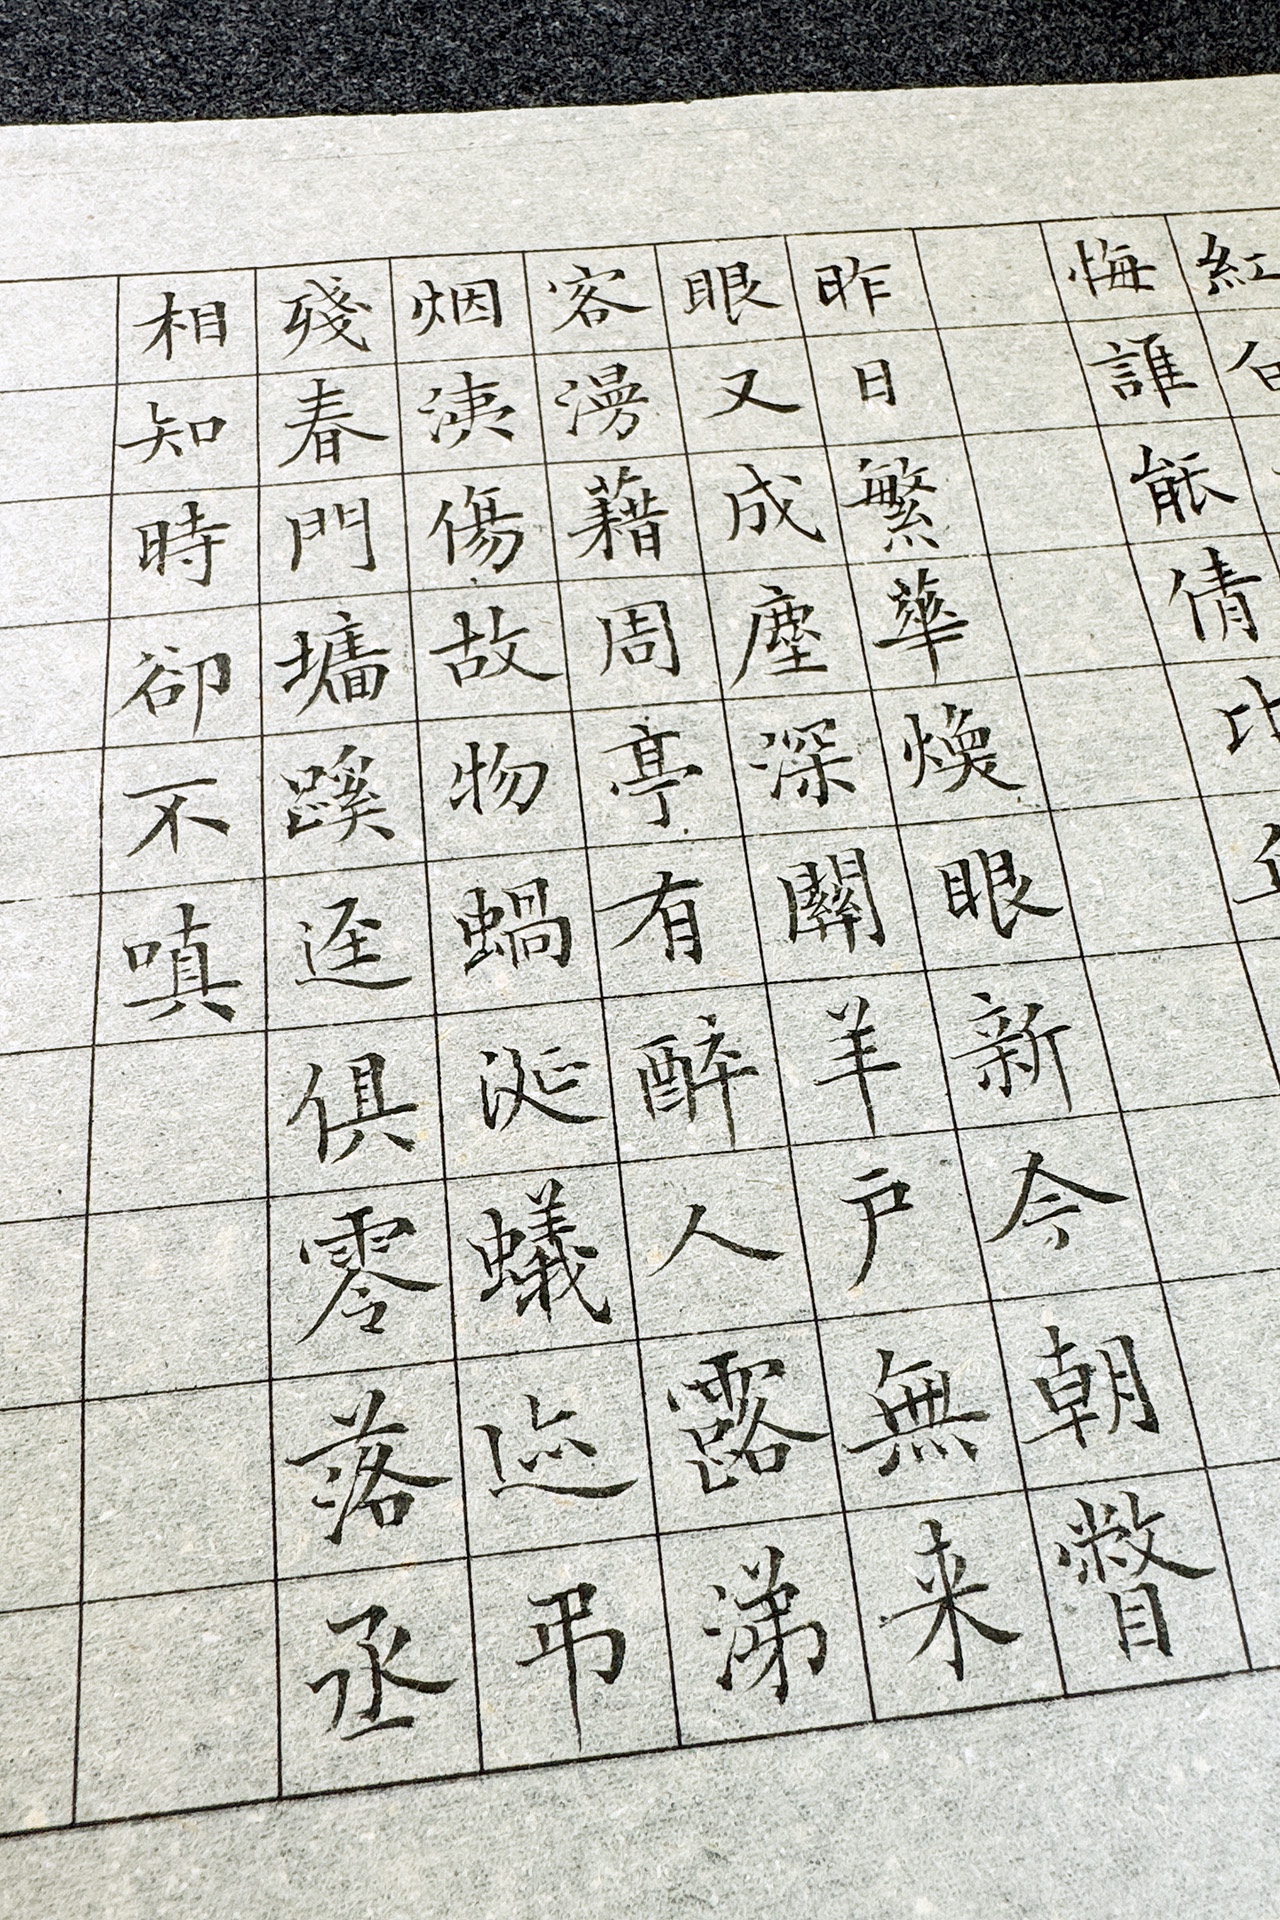 紅
悔誰能倩
昨日繁華煥眼新今朝瞥
眼又成塵深關羊戶無来
客漫藉周亭有醉人露涕
烟洟傷故物蝸涎蟻迹弔
殘春門墻蹊逕俱零落丞
相知時卻不嗔